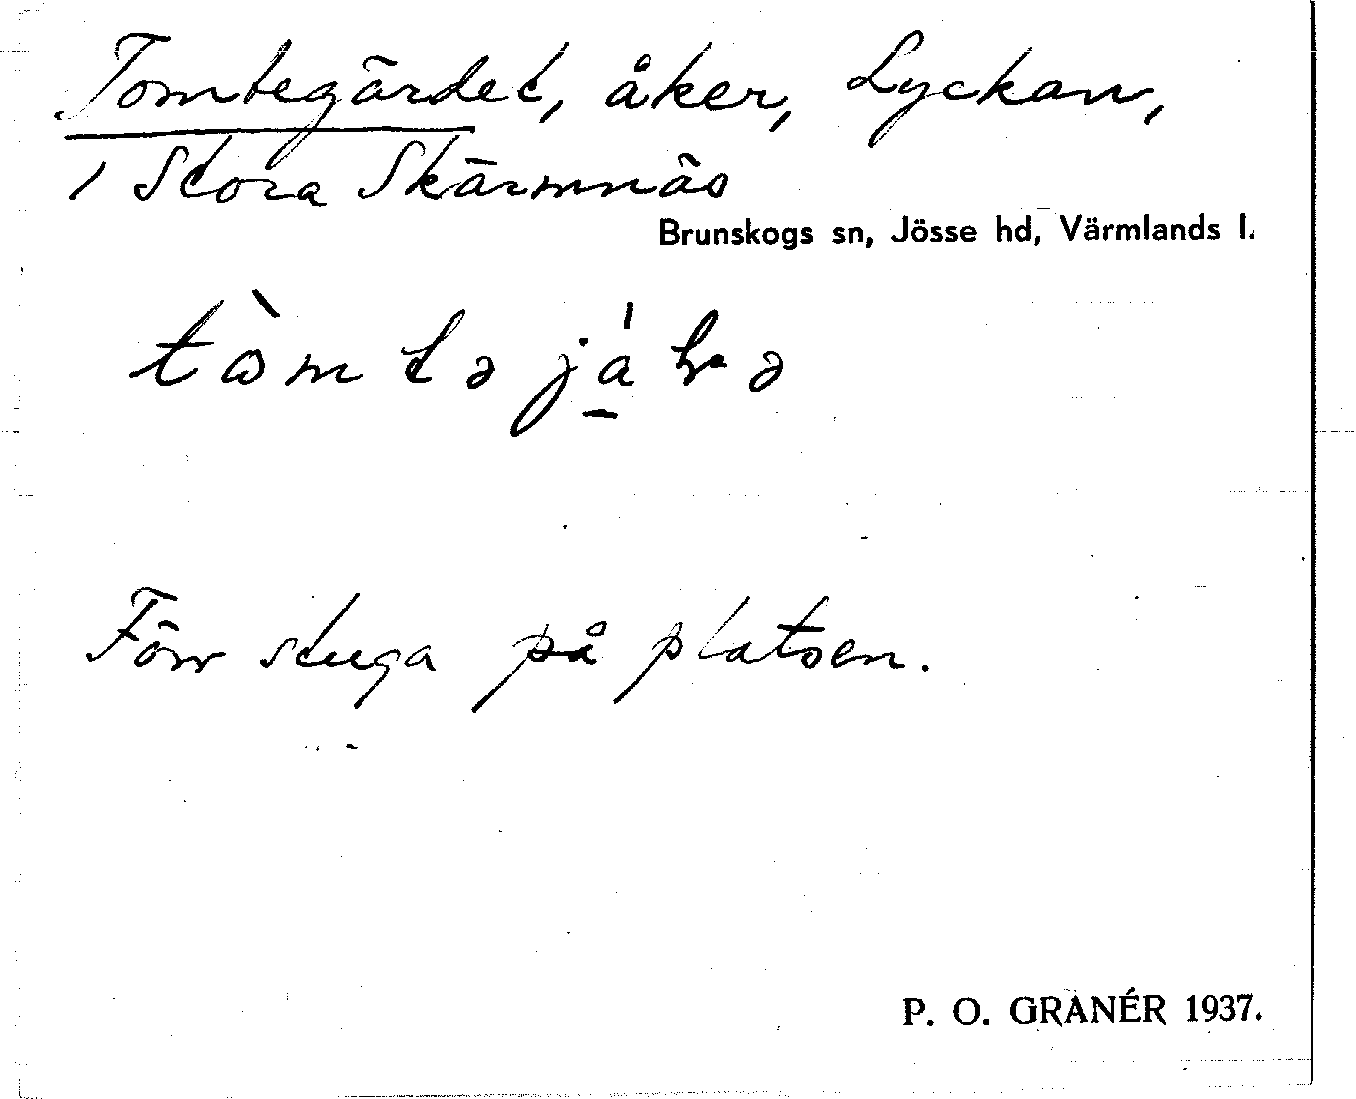 Tomtegärdet, åker, Lyckan,
i Stora Skärmnäs
Brunskogs sn, Jösse hd, Värmlands l.
Förr stuga på platsen.
P. O. GRANÉR 1937.